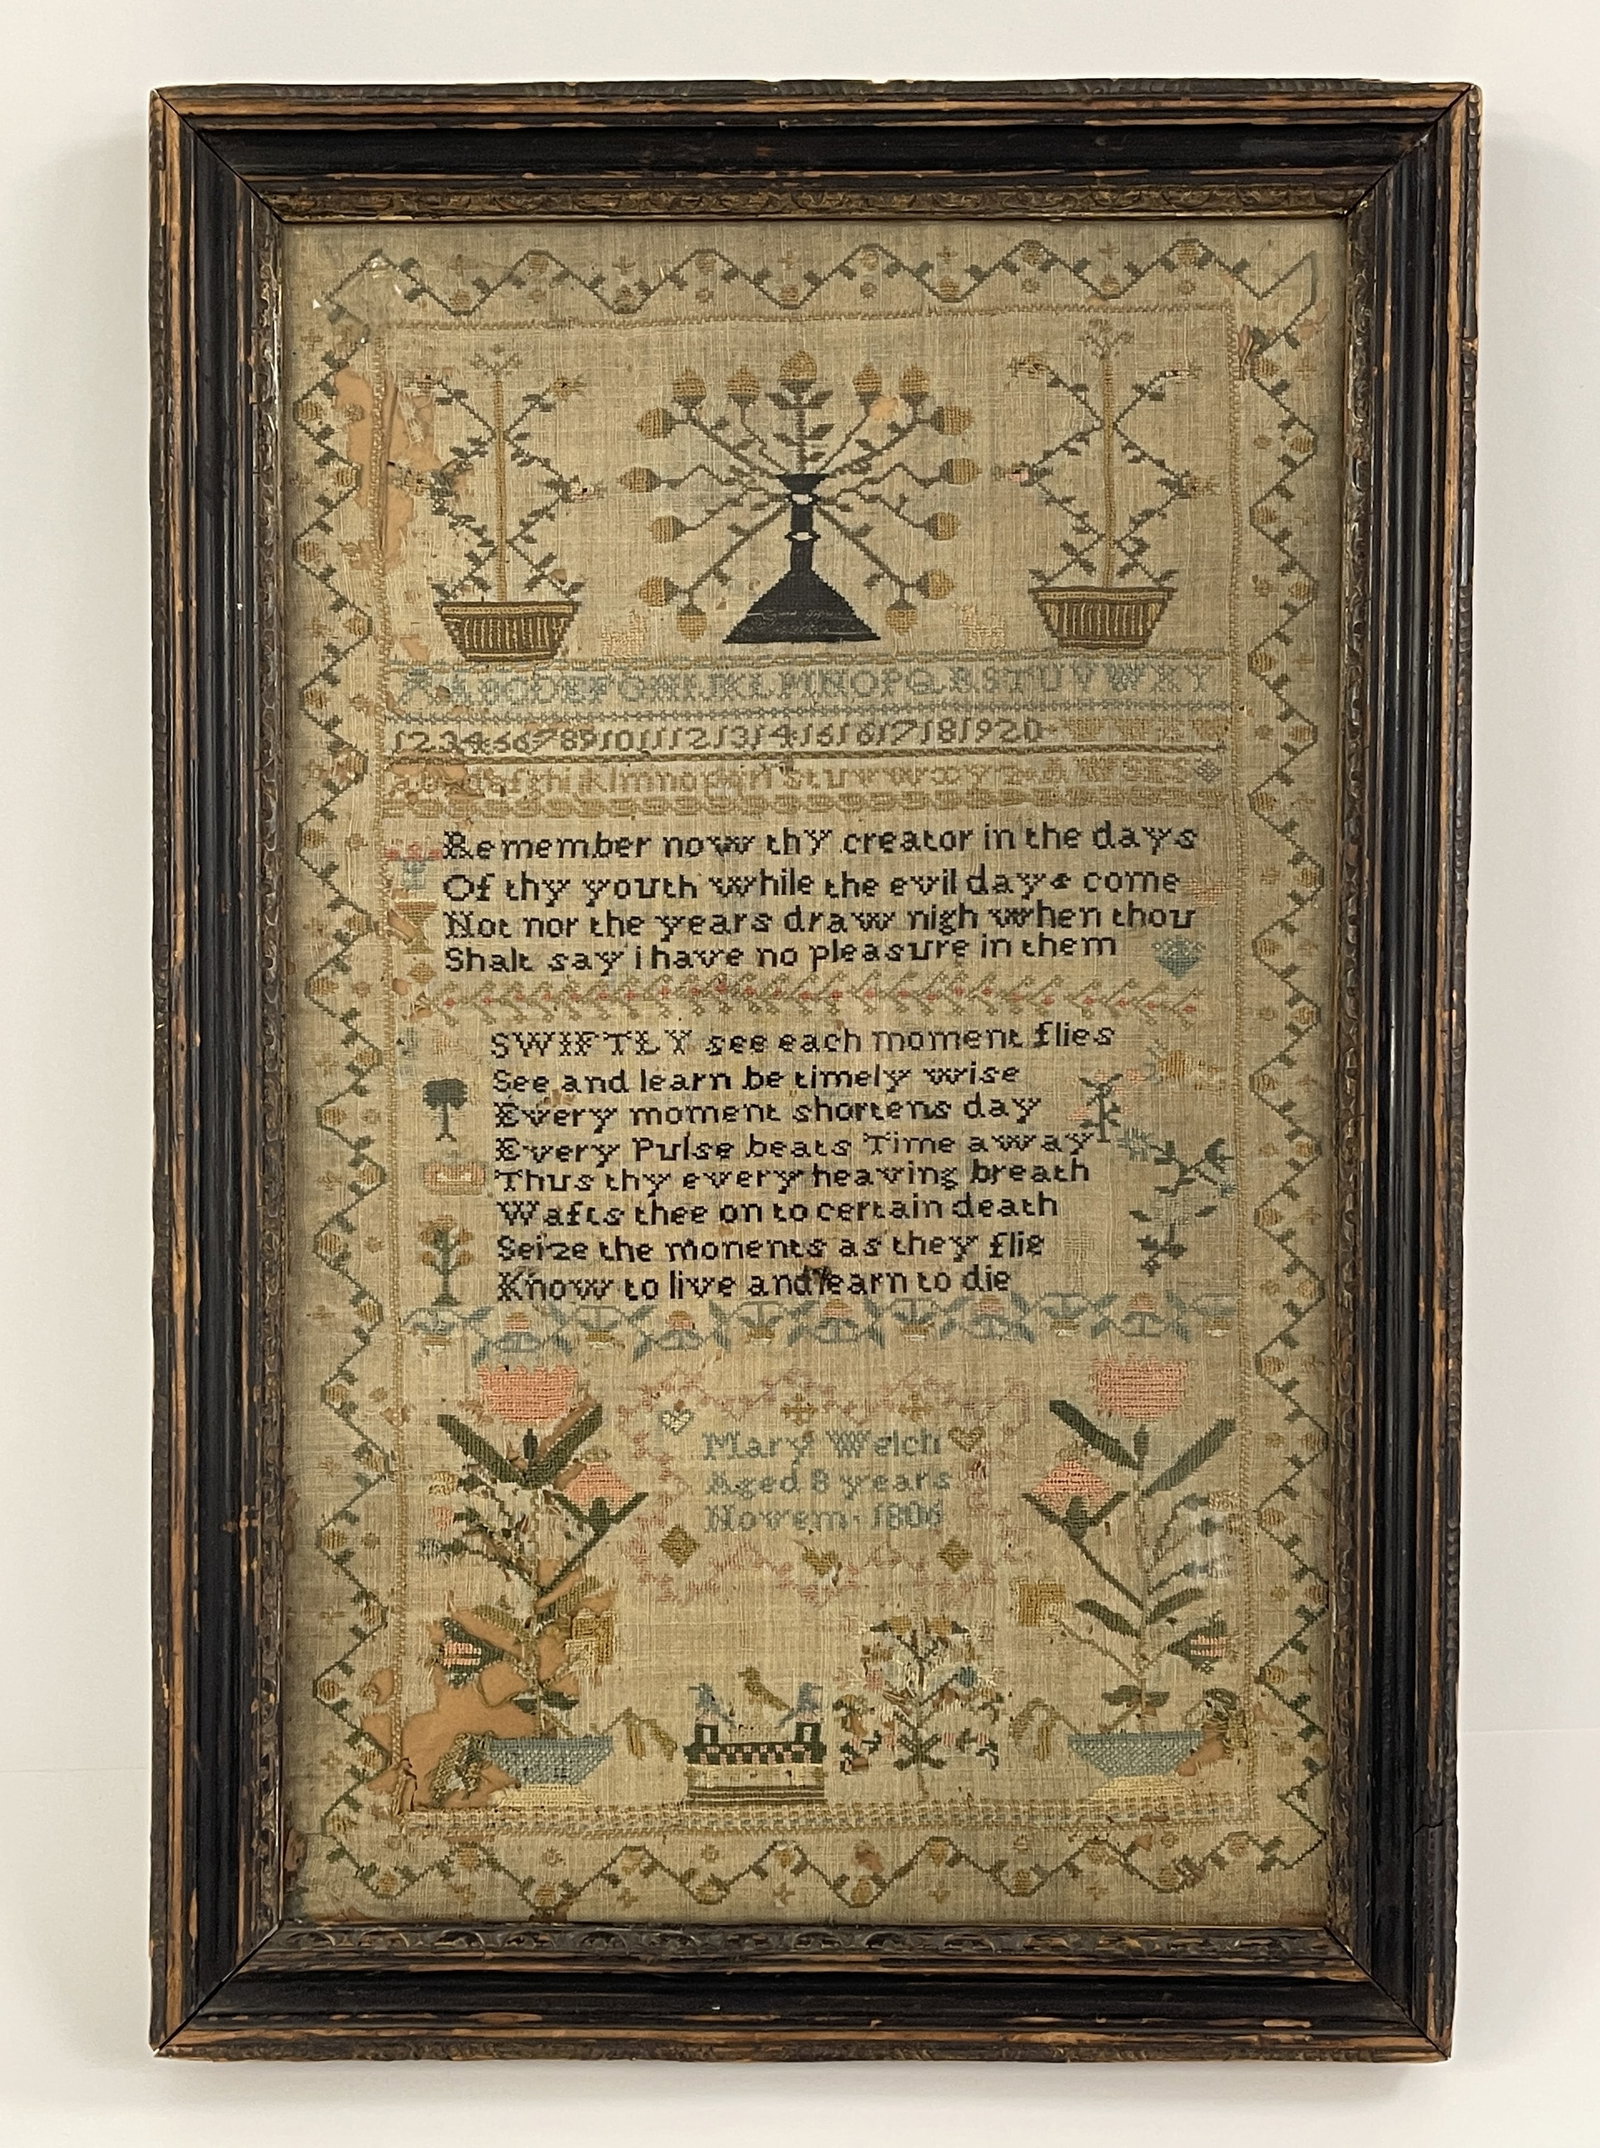 ABCDEFGHIJKLMNOPQRSTUVWXY
1234567891011121314151617181920
fghijklmnopqrstuvwxyz
Remember now thy creator in the days
Of thy youth while the evil days come
Not nor the years draw nigh when thou
Shalt say i have no pleasure in them
SWIFTLY see each moment flies
See and learn be timely wise
Every moment shortens day
Every Pulse beats Time away
Thus thy every heaving breath
Wafts thee on to certain death
Seize the monents as they flie
Know to live and learn to die
Mary Welch
Aged 8 years
Novem. 1806